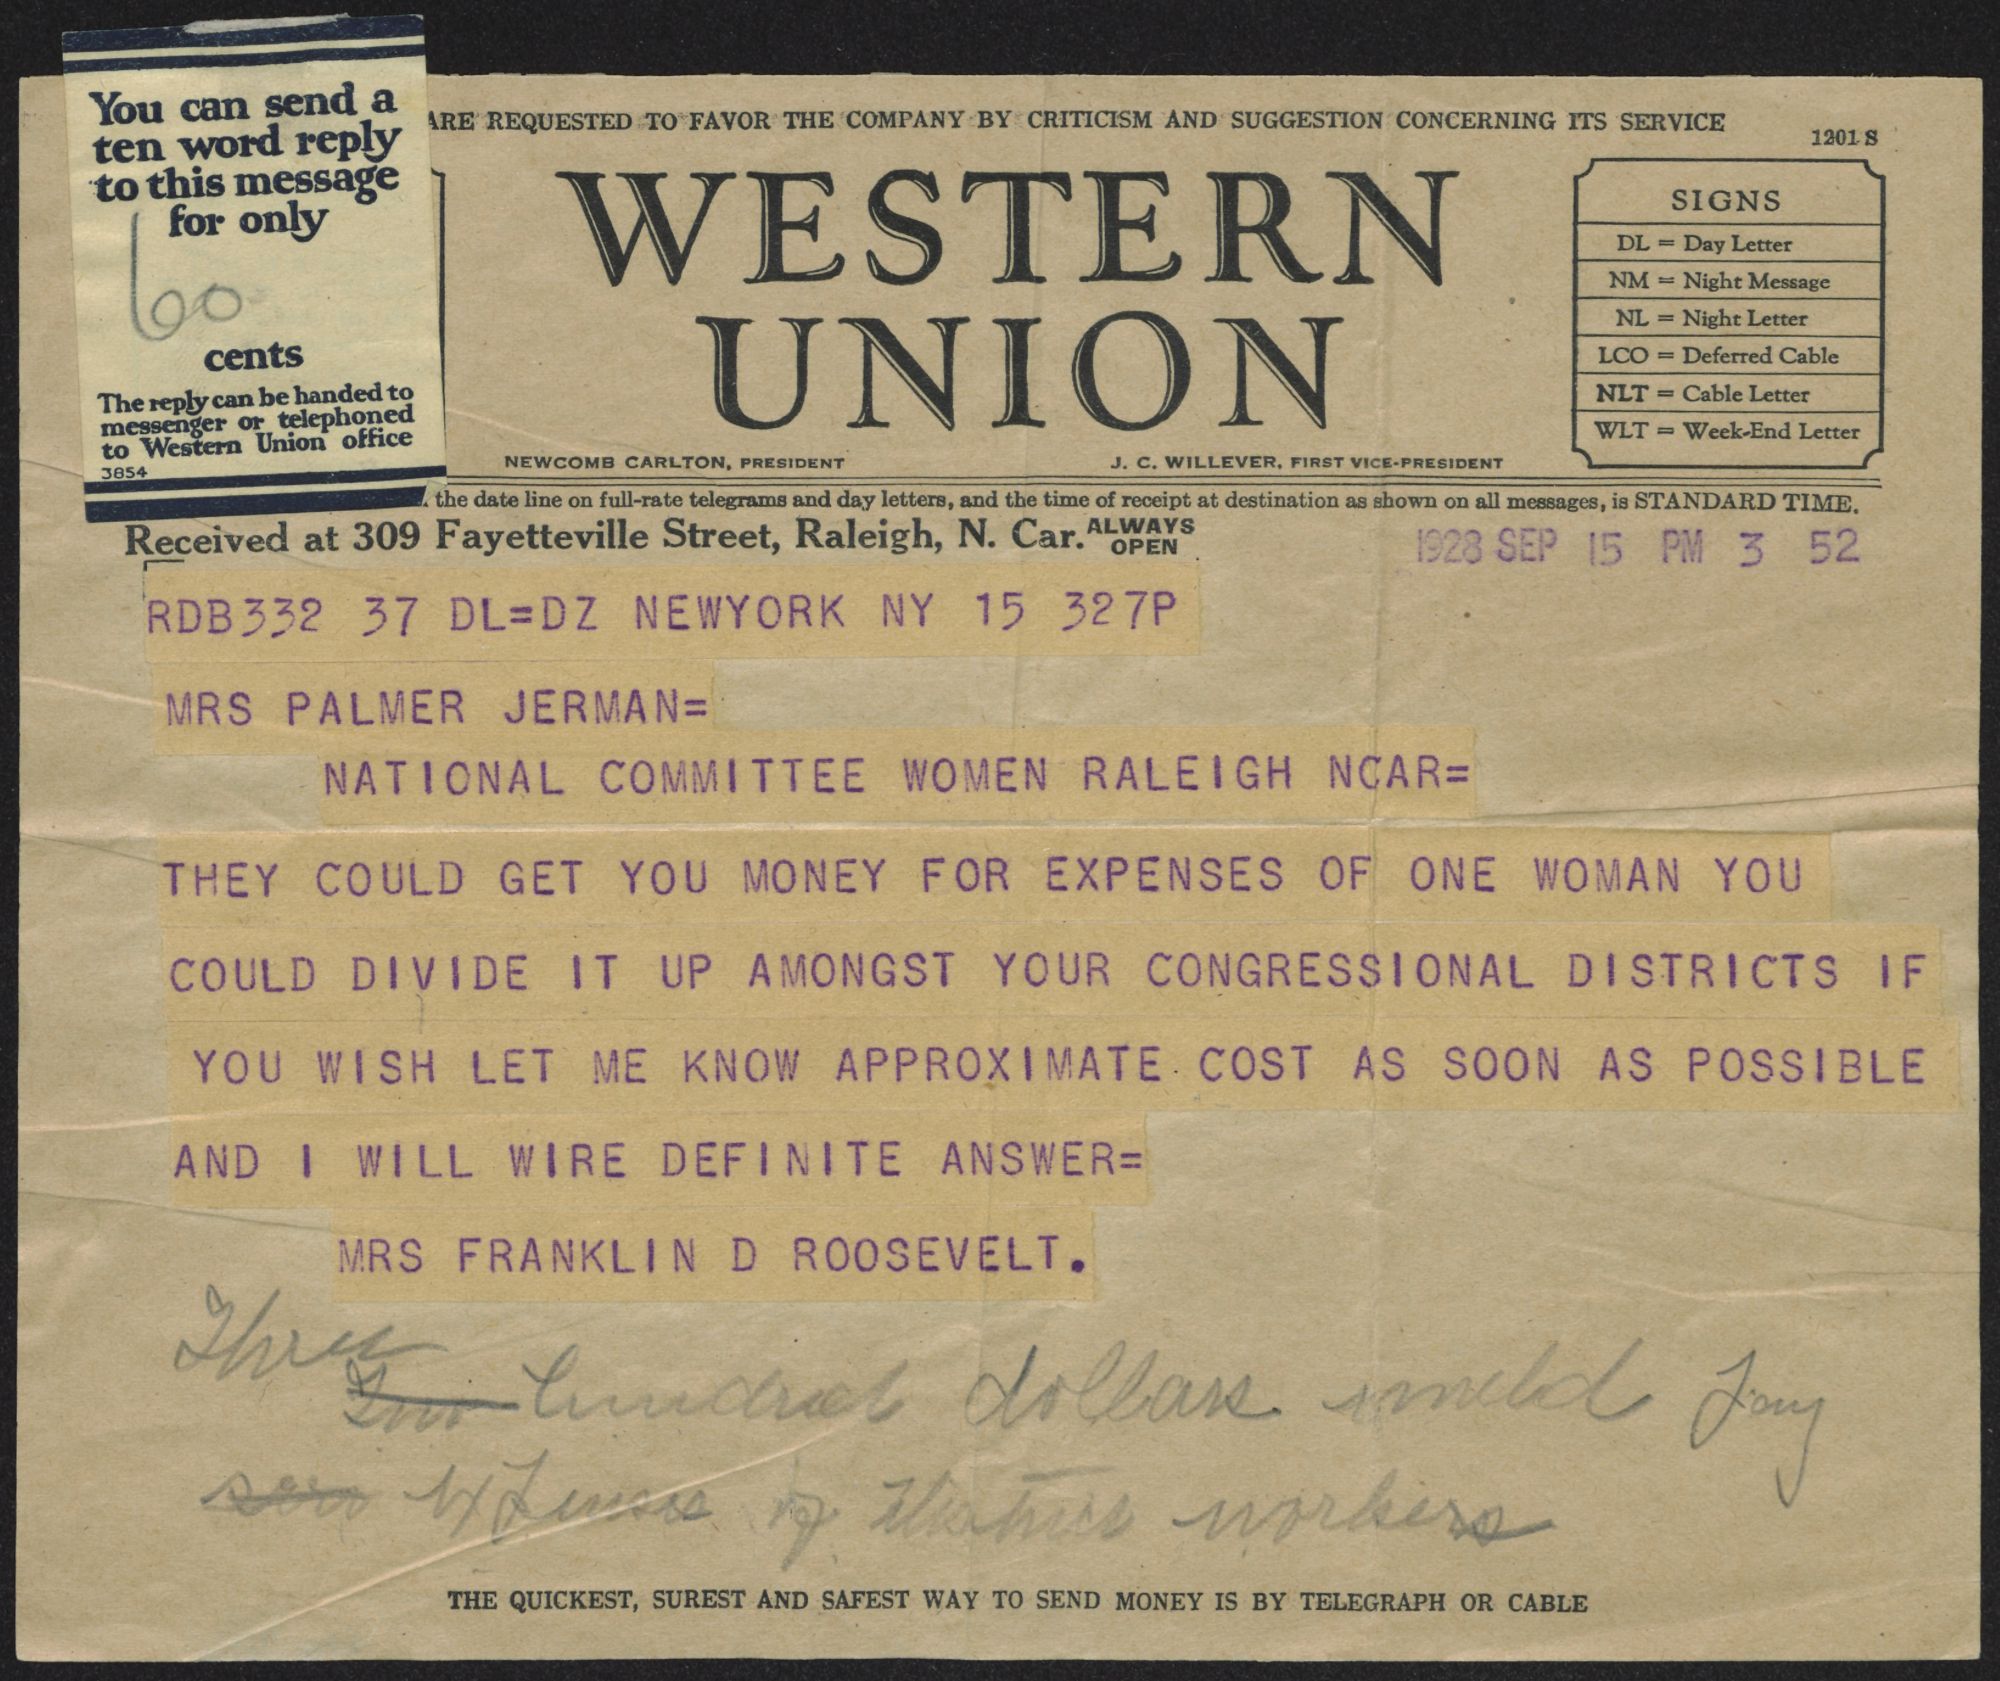 You can send a
ten word reply
to this message
for only
60
cents
The reply can be handed to
messenger or telephoned
to Western Union office
3854
ARE REQUESTED TO FAVOR THE COMPANY BY CRITICISM AND SUGGESTION CONCERNING ITS SERVICE
1201 S
WESTERN
UNION
NEWCOMB CARLTON, PRESIDENT
J. C. WILLEVER, FIRST VICE-PRESIDENT
SIGNS
DL = Day Letter
NM = Night Message
NL = Night Letter
LCO = Deferred Cable
NLT = Cable Letter
WLT = Week-End Letter
the date line on full-rate telegrams and day letters, and the time of receipt at destination as shown on all messages, is STANDARD TIME.
Received at 309 Fayetteville Street, Raleigh, N. Car. ALWAYS OPEN
1928 SEP 15 PM 3 52
RDB332 37 DL=DZ NEWYORK NY 15 327P
MRS PALMER JERMAN=
NATIONAL COMMITTEE WOMEN RALEIGH NCAR=
THEY COULD GET YOU MONEY FOR EXPENSES OF ONE WOMAN YOU
COULD DIVIDE IT UP AMONGST YOUR CONGRESSIONAL DISTRICTS IF
YOU WISH LET ME KNOW APPROXIMATE COST AS SOON AS POSSIBLE
AND I WILL WIRE DEFINITE ANSWER=
MRS FRANKLIN D ROOSEVELT.
Three
Two hundred dollars would pay
expenses of district workers
THE QUICKEST, SUREST AND SAFEST WAY TO SEND MONEY IS BY TELEGRAPH OR CABLE